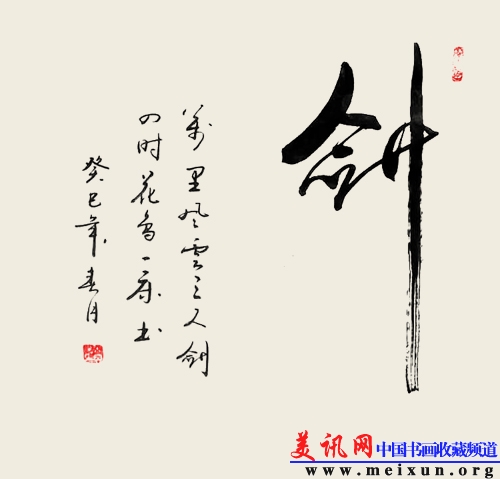 剑
萬里风雲三尺剑
四时花鸟一床书
癸巳年春月
美讯网 中国书画收藏频道
www.meixun.org